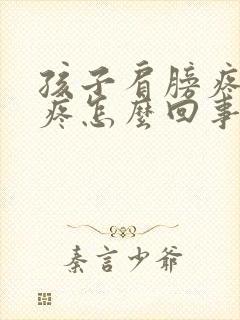 孩子肩膀疼
疼怎麼回事
秦言少爺